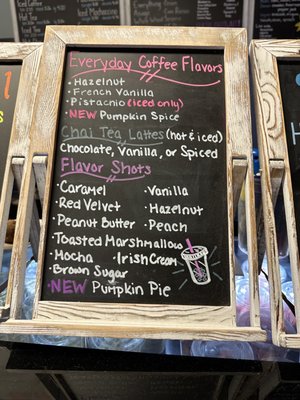 Iced Coffee
Iced Mochaccino
Everyday Coffee Flavors
• Hazelnut
• French Vanilla
• Pistachio (iced only)
• NEW Pumpkin Spice
Chai Tea Lattes (hot & iced)
Chocolate, Vanilla, or Spiced
Flavor Shots
• Caramel • Vanilla
• Red Velvet • Hazelnut
• Peanut Butter • Peach
• Toasted Marshmallow
• Mocha • Irish Cream
• Brown Sugar
• NEW Pumpkin Pie